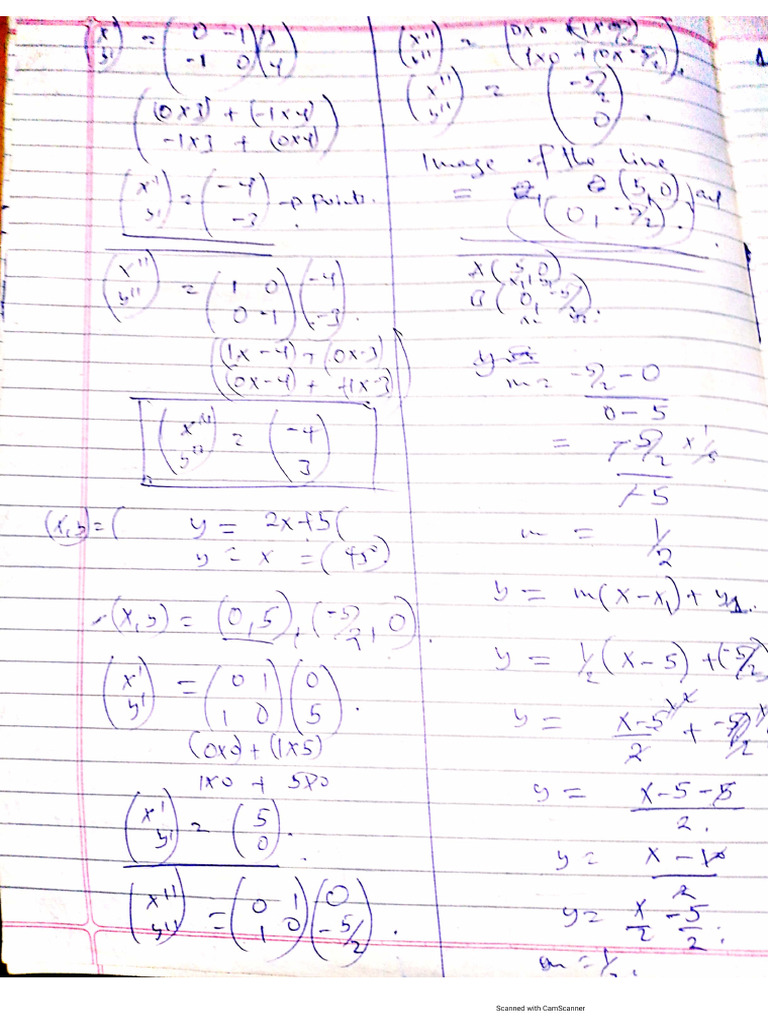 (x' y') = (0 -1 -1 0)(3 4)
((0x3) + (-1x4) -1x3 + (0x4))
(x' y') = (-4 -3) → points.
(x'' y'') = (1 0 0 -1)(-4 -3).
((1x-4) + (0x-3) (0x-4) + -1x-3)
(x'' y'') = (-4 3)
(x,y) = ( y = 2x+5 (
y = x = (45°)
(x,y) = (0,5), (-5/2, 0).
(x' y') = (0 1 1 0)(0 5).
(0x0) + (1x5)
1x0 + 5x0
(x' y') = (5 0).
(x'' y'') = (0 1 1 0)(0 -5/2).
(x'' y'') = (0x0 + (1x-5/2) 1x0 + (0x-5/2)).
(x'' y'') = (-5/2 0).
Image of the line
= (5,0) and
(0, -5/2).
A(5,0) x1, y1
B(0, -5/2). x2 y2
m = -5/2 - 0 / 0 - 5
= -5/2 x 1/5 / -5
m = 1/2
y = m(x-x1) + y1.
y = 1/2(x-5) + (-5/2)
y = x-5/2 + -5/2
y = x-5-5 / 2.
y = x-10 / 2
y = x/2 - 5/2;
m = 1/2.
Scanned with CamScanner